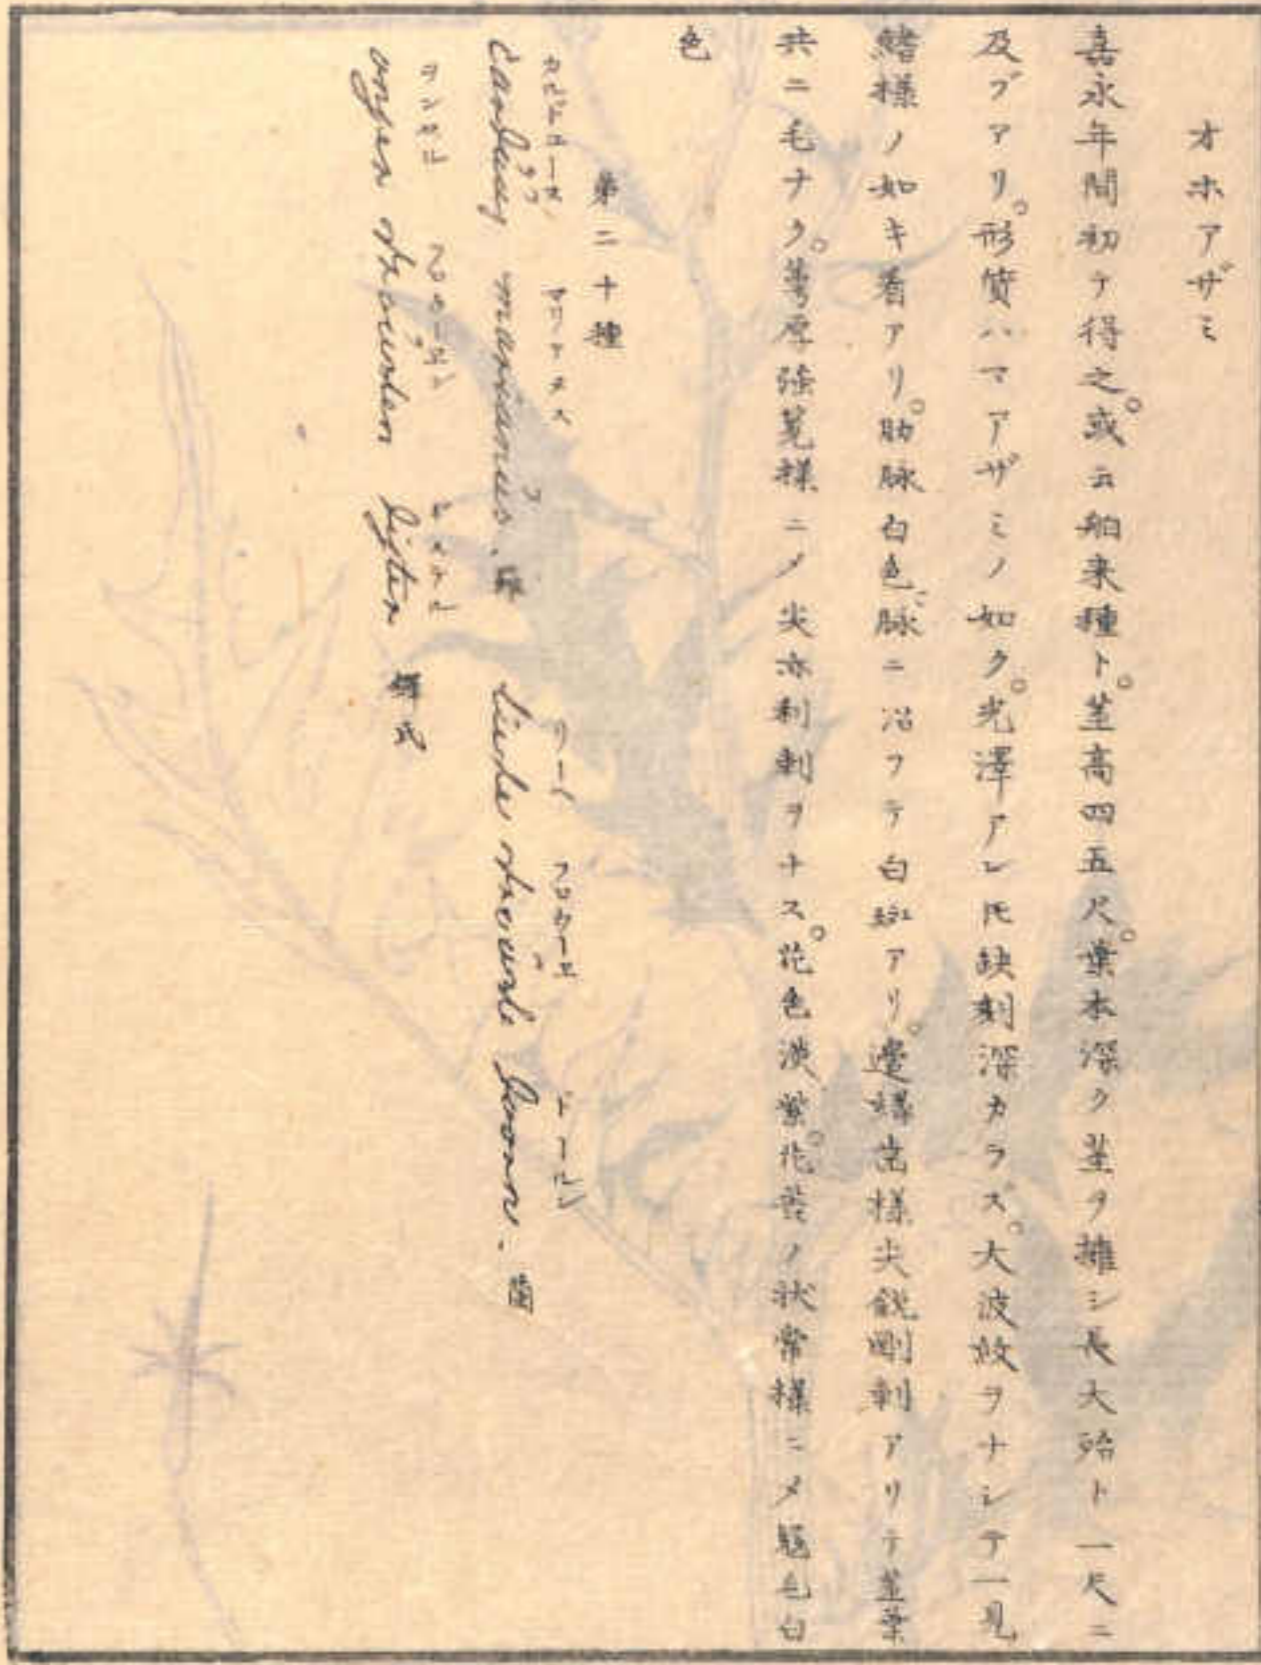 オホアザミ
嘉永年間初テ得之。或云舶来種ト。茎高四五尺。葉本深ク茎ヲ擁シ長大殆ト一尺ニ
及ブアリ。形質ハマアザミノ如ク。光澤アレ𪜈缺刻深カラズ。大波紋ヲナシテ一見
鰭様ノ如キ着アリ。肋脉白色。脉ニ沿フテ白斑アリ。邊縁歯様尖鋭剛刺アリテ茎葉
共ニ毛ナク。萼厚強筧様ニメ尖亦利刺ヲナス。花色淡紫。花蕊ノ状常様ニメ冠毛白
色
第二十種
Carduus marianus. 羅 リーヘ フロウヱ ドールン Lieve vrouwe Doorn. 蘭
onzer vrouwen dister 鐸氏